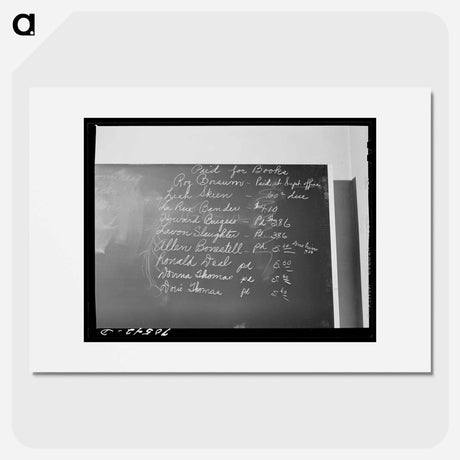 a
Paid for Books
Roy Borsum - Paid at Supt. office
Zach Skeen - 60¢ due
La Rue Bander 7.10
Howard Burgess - Pd 3.86
Levon Slaughter - Pd. 386
Allen Bonestell - Pd 5.00
Ronald Deal pd 5.00
Donna Thomas pd
Doris Thomas pd